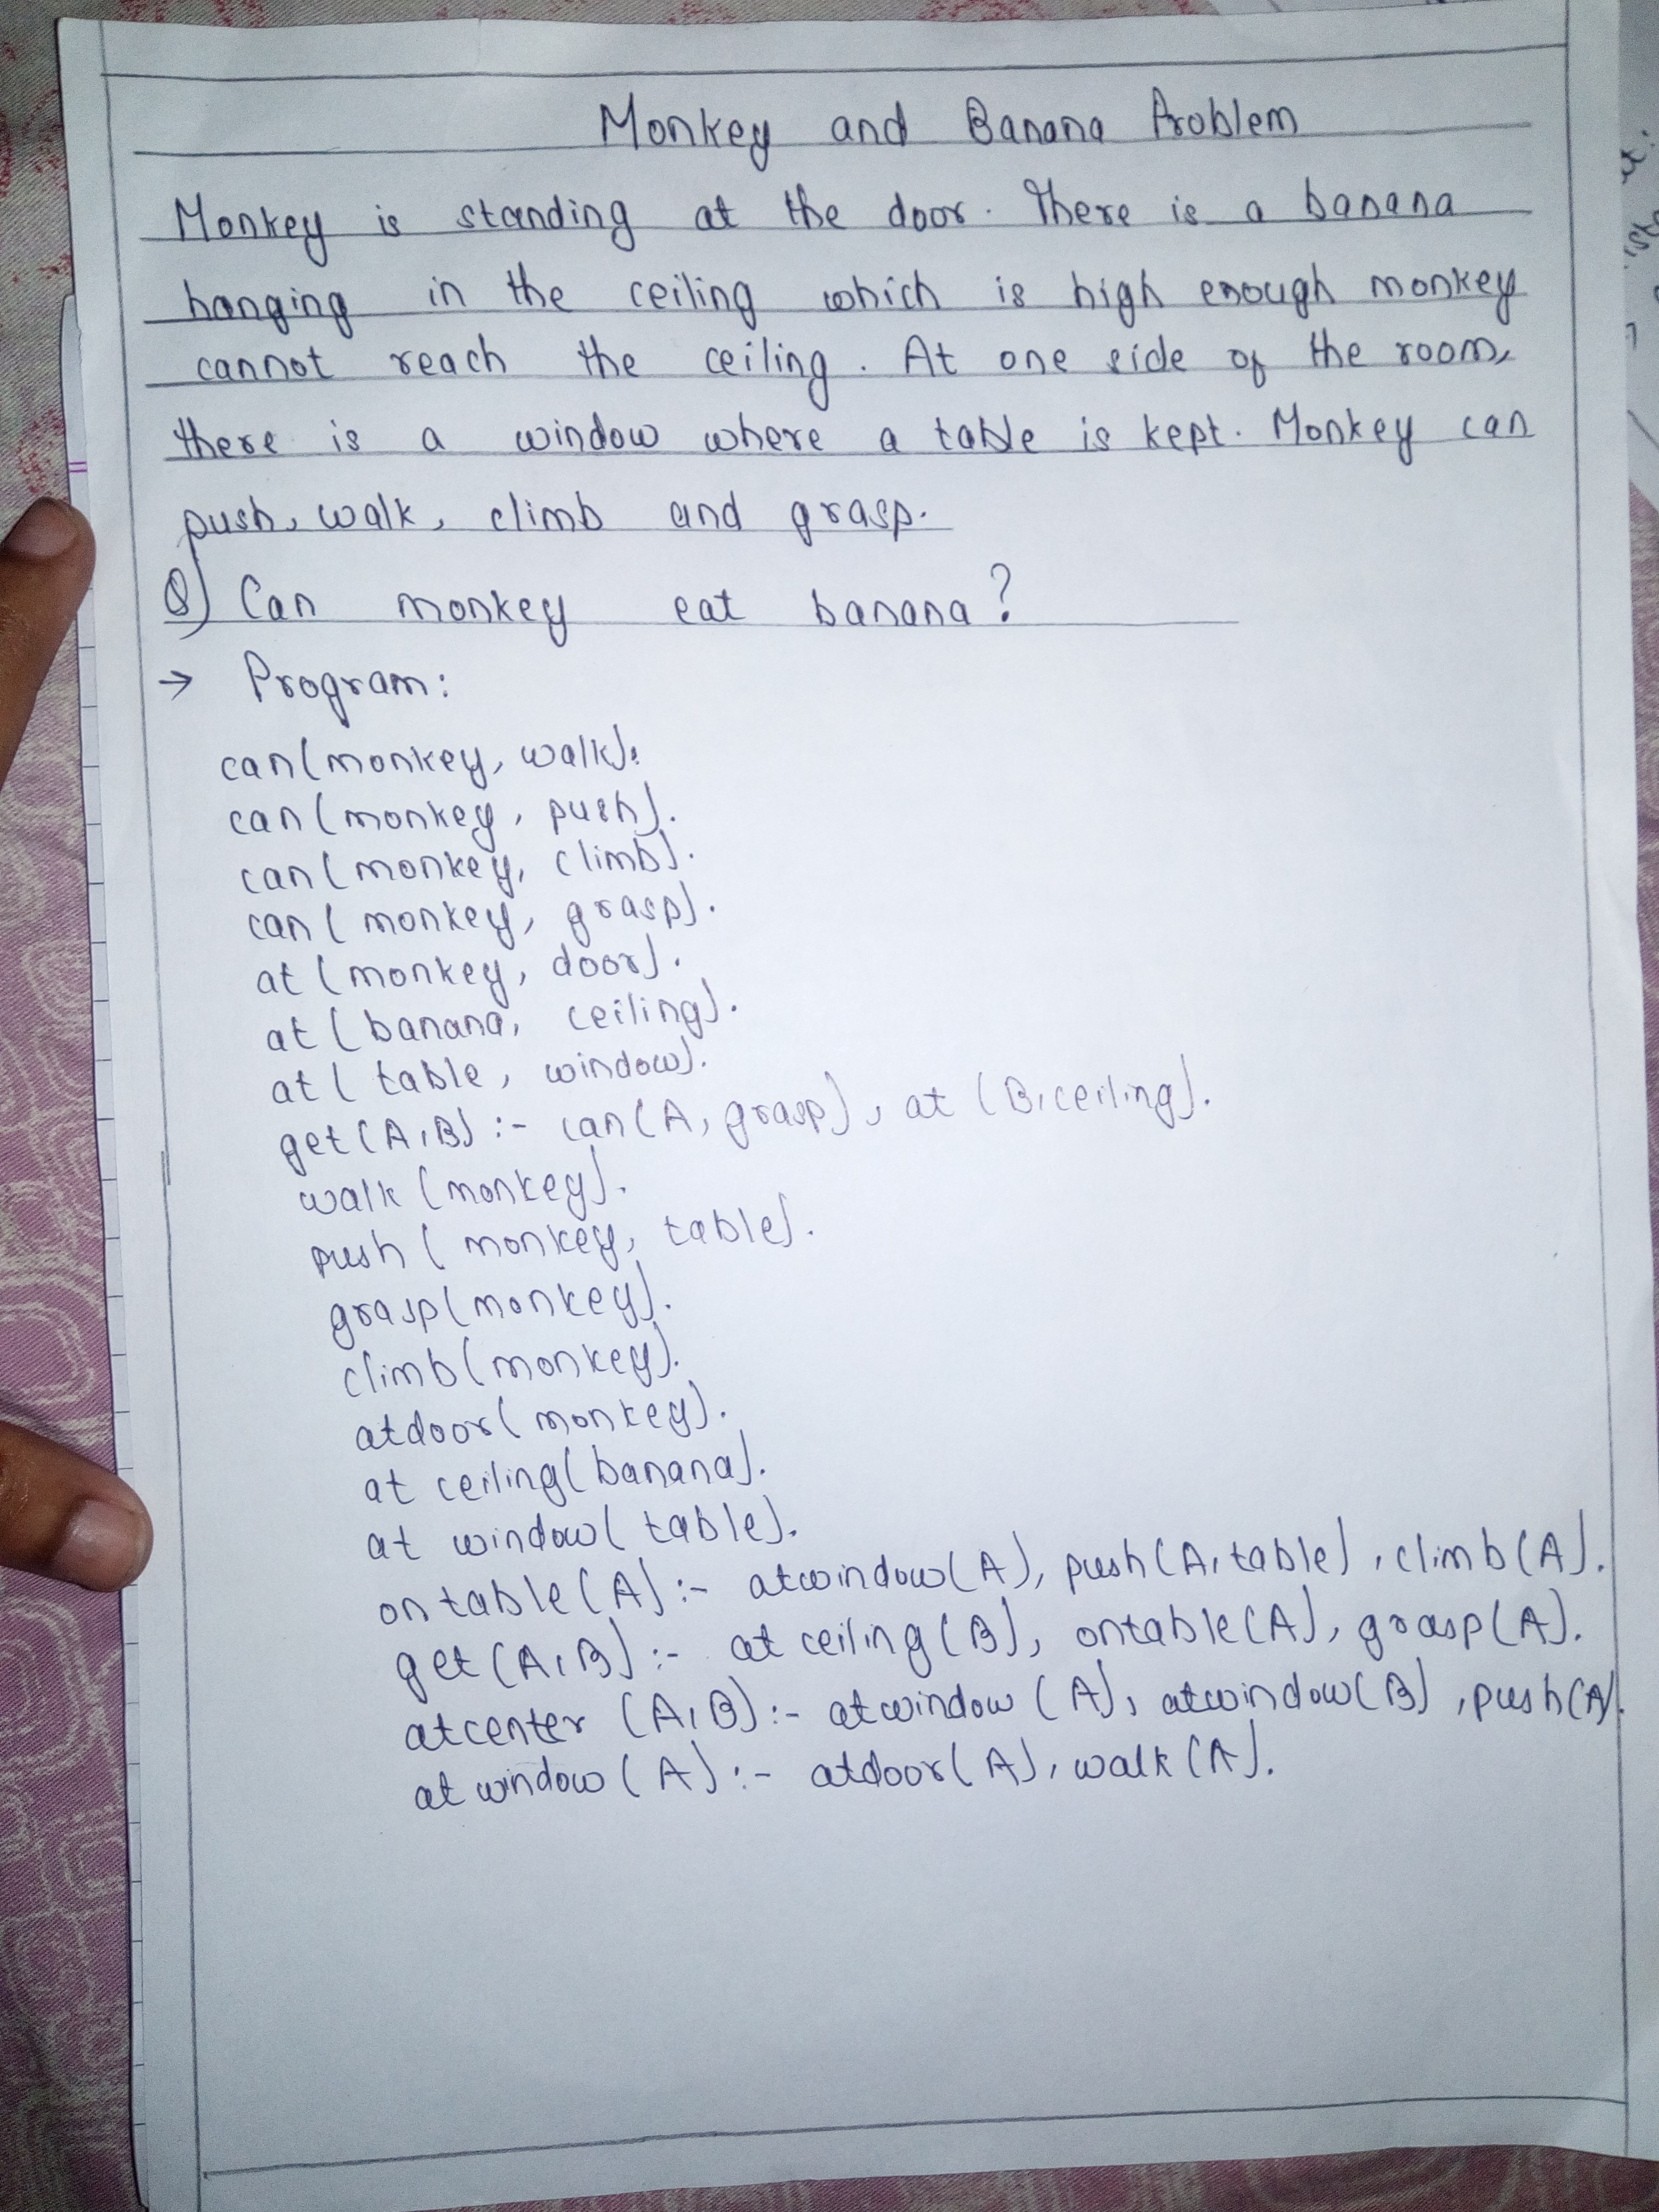 Monkey and Banana Problem
Monkey is standing at the door. There is a banana
hanging in the ceiling which is high enough monkey
cannot reach the ceiling. At one side of the room,
there is a window where a table is kept. Monkey can
push, walk, climb and grasp.
Q) Can monkey eat banana?
→ Program:
can(monkey, walk).
can(monkey, push).
can(monkey, climb).
can(monkey, grasp).
at(monkey, door).
at(banana, ceiling).
at(table, window).
get(A,B) :- can(A, grasp), at(B,ceiling).
walk(monkey).
push(monkey, table).
grasp(monkey).
climb(monkey).
atdoor(monkey).
at ceiling(banana).
at window(table).
on table(A) :- atwindow(A), push(A,table), climb(A).
get(A,B) :- at ceiling(B), ontable(A), grasp(A).
atcenter (A,B) :- atwindow(A), atwindow(B), push(A).
at window(A) :- atdoor(A), walk(A).